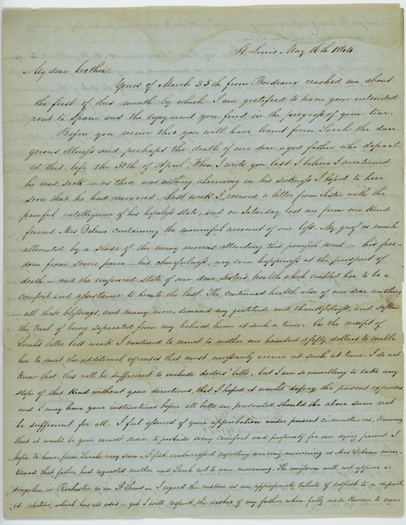 St. Louis May 16th 1844
My dear brother
Yours of March 25th from Bordeaux reached me about
the first of this month by which I am gratified to learn your intended
rout to Spain and the enjoyment you find in the progress of your tour.
Before you receive this you will have learnt from Sarah the dan-
gerous illness and perhaps the death of our dear aged father who depart-
ed this life the 30th of April. When I wrote you last I believe I mentioned
he was sick — as there was nothing alarming in his sickness I hoped to hear
soon that he had recovered. Last week I received a letter from Sister with the
painful intelligence of his hopeless state, and on Saturday last one from our kind
friend Mrs containing the mournful account of our loss. My grief is much
alleviated by a sense of the many mercies attending this painful event — his free-
dom from severe pain — his cheerfulness, nay even happiness at the prospect of
death — and the improved state of our dear Sister's health which enabled her to be a
comfort and assistance to him to the last. The continued health also of our dear mother
— all these blessings, and many more, demand my gratitude and thankfulness, and soften
the trial of being separated from my beloved home at such a time. On the receipt of
Sarah's letter last week I continued to remit to mother one hundred & fifty dollars to enable
her to meet the additional expenses that must necessarily accrue at such a time. I do not
know that this will be sufficient to include doctors' bills, but I am so unwilling to take any
steps of this kind without your directions, that I hoped it would defray the present expenses
and I may have your instructions before all bills are presented should the above sum not
be sufficient for all. I feel assured of your approbation under present circumstances, knowing
that it would be your earnest desire to provide every comfort and propriety for our dying parent. I
hope to hear from Sarah very soon. I feel embarrassed respecting wearing mourning as Mrs men-
tioned that father had requested mother and Sarah not to wear mourning. The omission will not appear so
singular in Rochester as in St Louis — I regard the custom as an appropriate tribute of respect to a depart-
ed relative, which has its uses — yet I will respect the wishes of my father when fully made known to me